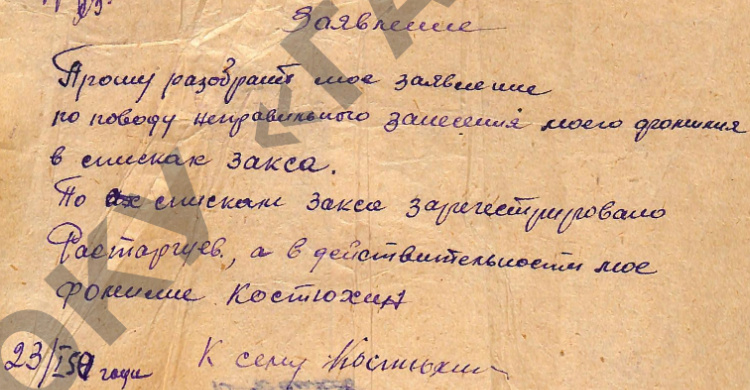 Заявление
Прошу разобрать мое заявление
по поводу неправильного занесения моего фомилия
в списках Закса.
По спискам Закса зарегестрировано
Растаргуев, а в действительности мое
фомилие Костюхин
23/I 50 года К сему Костюхин